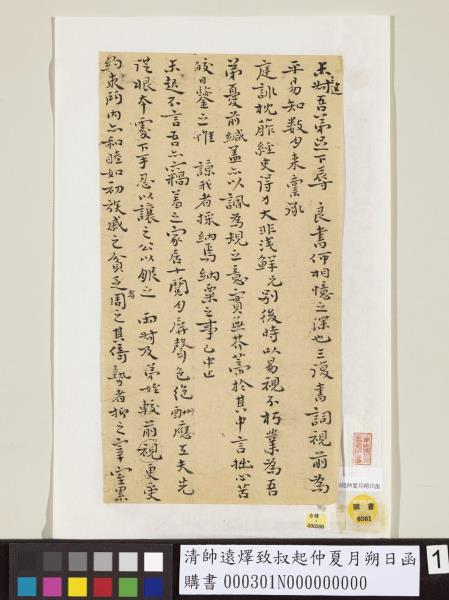 吾弟足下辱 良書何相憶之深也三復書詞視前為
平易知數月來稟承
庭訓枕藉經史得力大非淺鮮兄別後時以易視不朽業為吾
弟憂前緘蓋亦以諷為規之意實無芥蒂於其中言拙心苦
皎日鑒之惟 諒我者採納焉納粟之事已中止
起不言吾亦竊羞之家居十閱月屏聲色絕酬應工夫先
從根本處下手忍以讓之公以服之 面時及弟姪較前視更受
約束閤內亦和睦如初族戚之貧乏者周之其倚勢者抑之宰室累
購書
0301
000286
清帥遠燡致叔起仲夏月朔日函
購書 000301N000000000
1